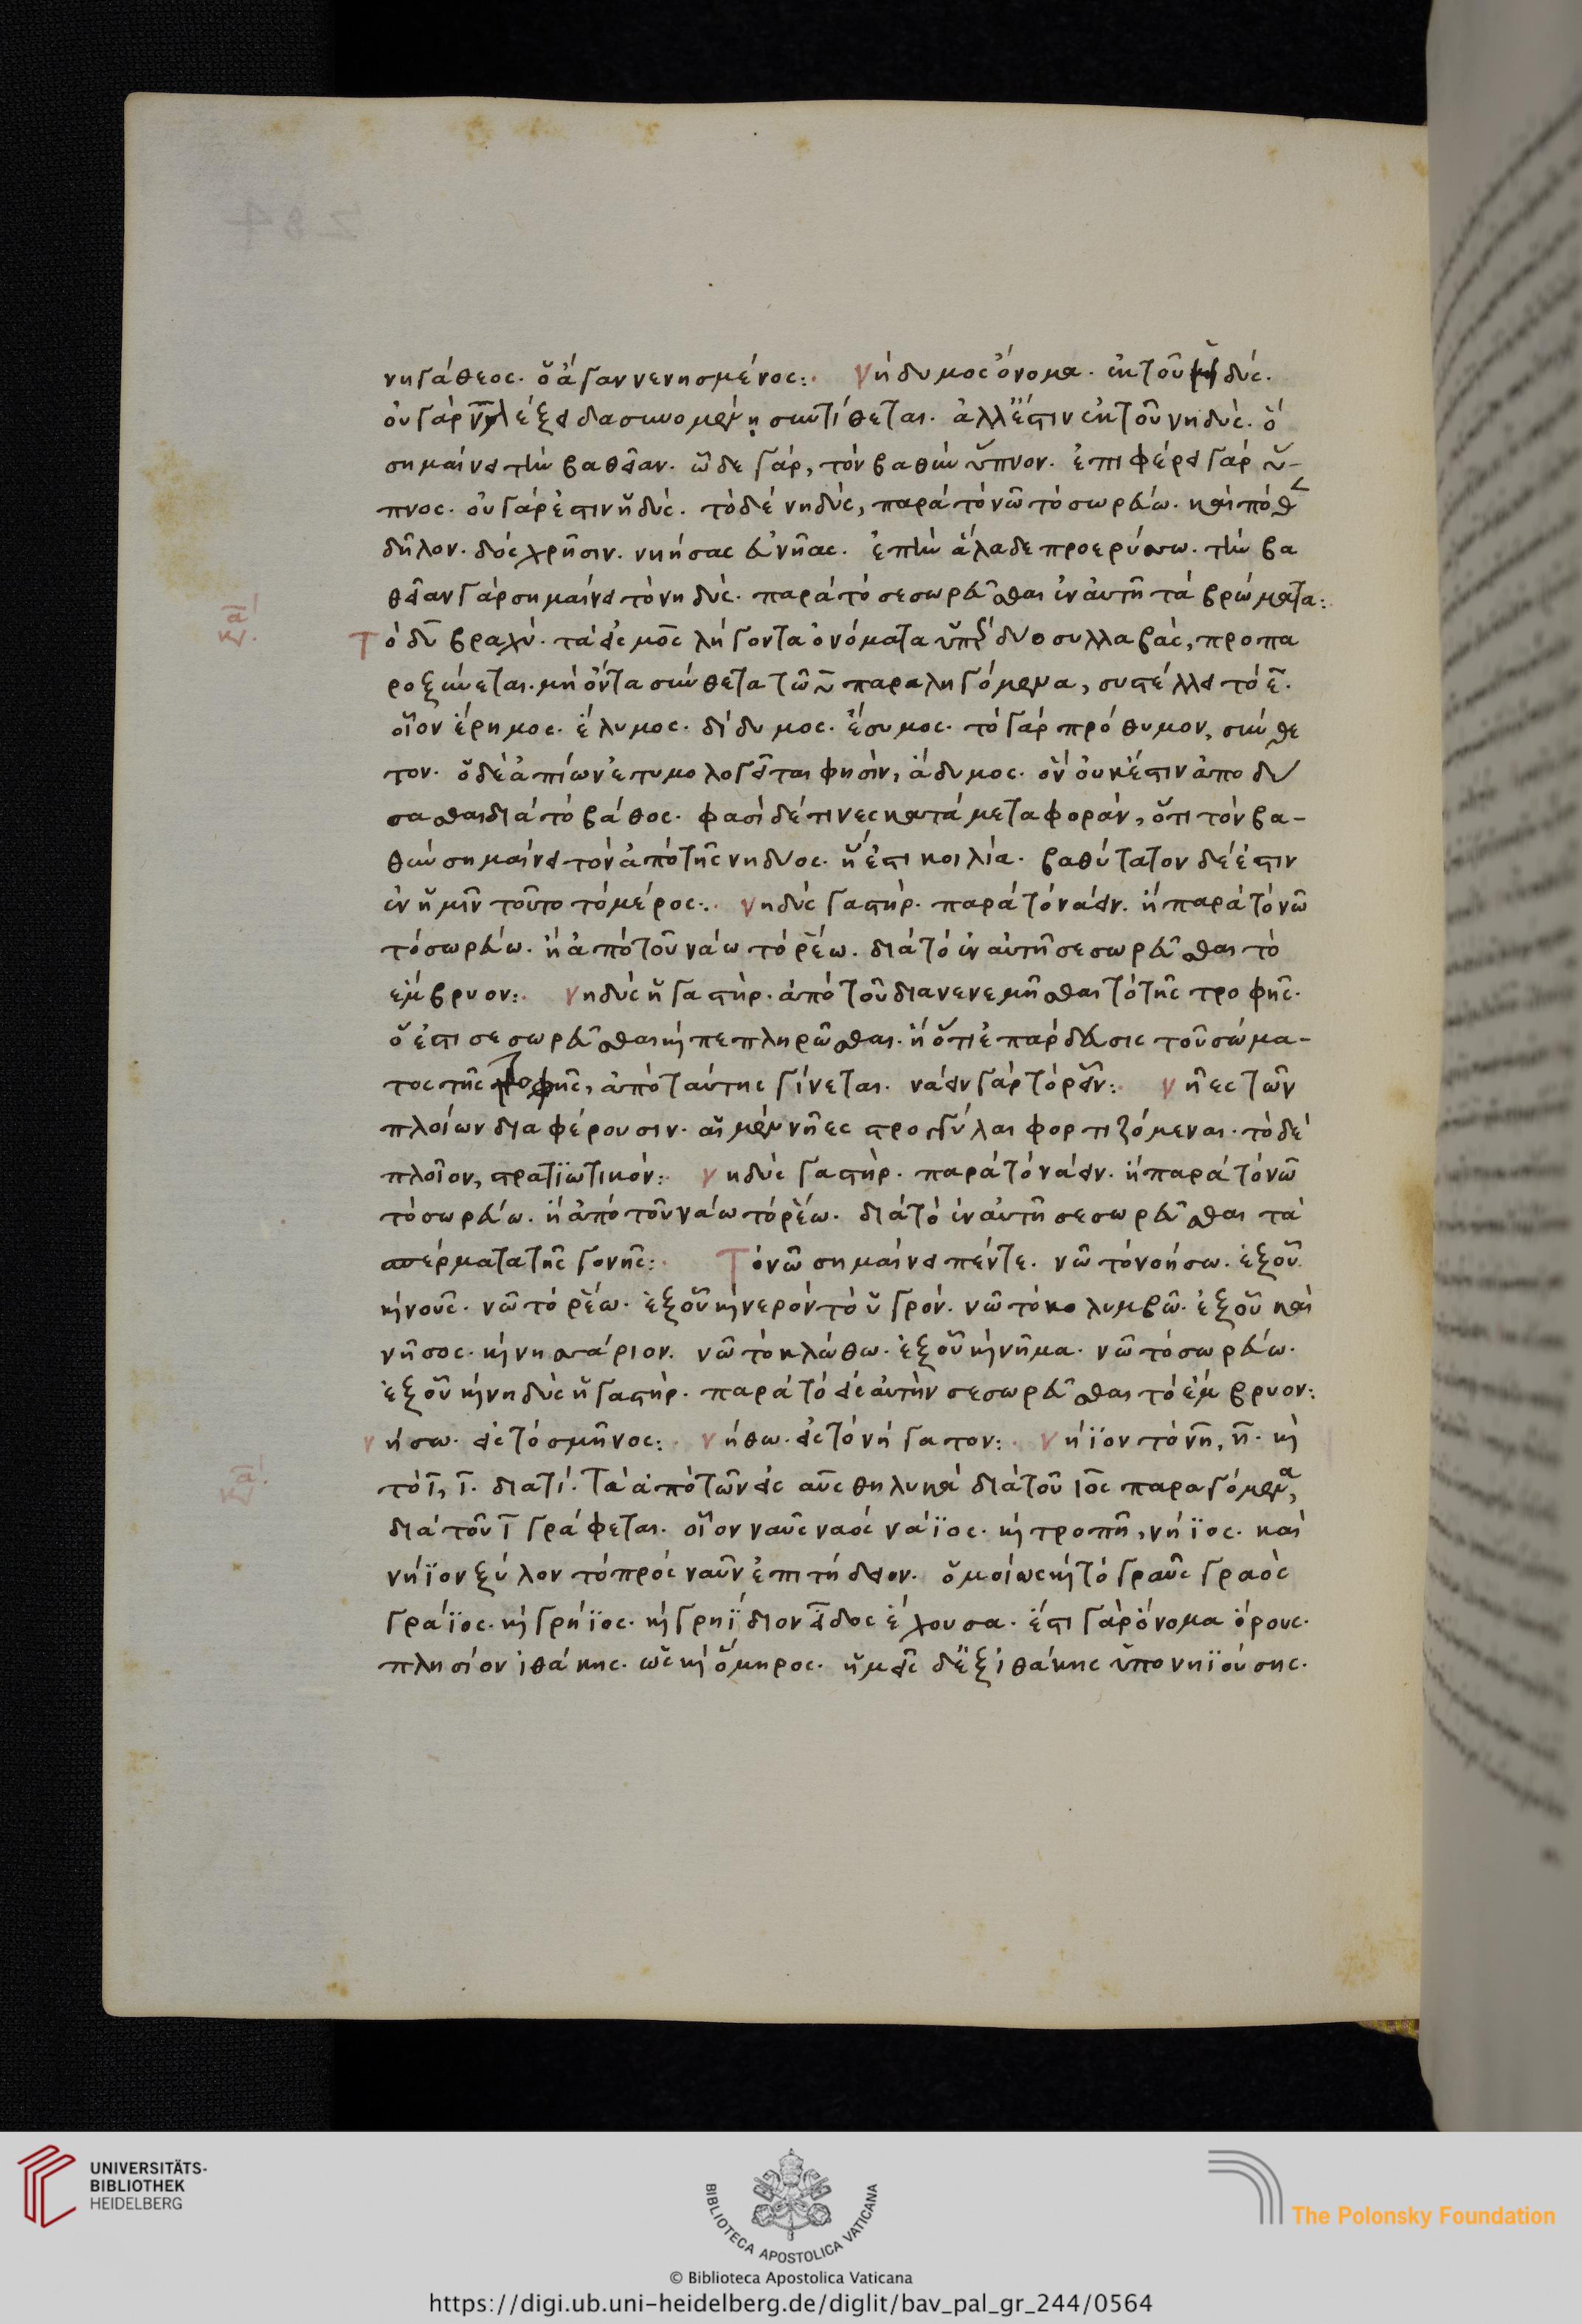 νηγάθεος. ὁ ἄγαν νενησμένος: νήδυμος ὄνομα. ἐκ τοῦ δύς.
οὐ γὰρ λέξει δασυνομένη συντίθεται. ἀλλ' ἔστιν ἐκ τοῦ νηδύς. ὃ
σημαίνει τὴν βαθεῖαν. ὧδε γὰρ, τὸν βαθὺν ὕπνον. ἐπιφέρει γὰρ ὕ-
πνος. οὐ γάρ ἐστιν ἡδύς. τὸ δὲ νηδύς, παρὰ τὸ νῶ τὸ σωρεύω. καὶ πόθεν
δῆλον. δὸς χρῆσιν. νηήσας εὖ νῆας. ἐπὴν ἅλαδε προερύσσω. τὴν βα
θεῖαν γὰρ σημαίνει τὸ νηδύς. παρὰ τὸ σεσωρεῦσθαι ἐν αὐτῆ τὰ βρώματα:
Τὸ δυ βραχύ. τὰ εἰς μος λήγοντα ὀνόματα ὑπὲρ δύο συλλαβὰς, προπα
ροξύνεται. μὴ ὄντα σύνθετα τῶ υ παραληγόμενα, συστέλλει τὸ ε.
οἷον ἔρημος. ἔλυμος. δίδυμος. ἔσυμος. τὸ γὰρ πρόθυμον, σύνθε
τον. ὁ δὲ ἀπίων ἐτυμολογεῖται φησὶν, ἄδυμος. ὃν οὐκ ἔστιν ἀποδύ
σασθαι διὰ τὸ βάθος. φασὶ δέ τινες κατὰ μεταφορὰν, ὅτι τὸν βα-
θὺν σημαίνει τὸν ἀπὸ τῆς νηδύος. ἥ ἐστι κοιλία. βαθύτατον δέ ἐστιν
ἐν ἡμῖν τοῦτο τὸ μέρος: νηδὺς γαστήρ. παρὰ τὸ νάειν. ἢ παρὰ τὸ νῶ
τὸ σωρεύω. ἢ ἀπὸ τοῦ νάω τὸ ῥέω. διὰ τὸ ἐν αὐτῆ σεσωρεῦσθαι τὸ
ἔμβρυον: νηδὺς ἡ γαστήρ. ἀπὸ τοῦ διανενεμῆσθαι τὸ τῆς τροφῆς.
ὅ ἐστι σεσωρεῦσθαι καὶ πεπληρῶσθαι. ἢ ὅτι ἐπάρδευσις τοῦ σώμα-
τος τῆς τροφῆς, ἀπὸ ταύτης γίνεται. νάειν γὰρ τὸ ῥεῖν: νῆες τῶν
πλοίων διαφέρουσιν. αἱ μὲν νῆες στρογγύλαι φορτιζόμεναι. τὸ δὲ
πλοῖον, στρατϊωτικόν: νηδὺς γαστήρ. παρὰ τὸ νάειν. ἢ παρὰ τὸ νῶ
τὸ σωρεύω. ἢ ἀπὸ τοῦ νάω τὸ ῥέω. διὰ τὸ ἐν αὐτῆ σεσωρεῦσθαι τὰ
σπέρματα τῆς γονῆς: Τὸ νῶ σημαίνει πέντε. νῶ τὸ νοήσω. ἐξ οὗ
καὶ νοῦς. νῶ τὸ ῥέω. ἐξ οὗ καὶ νερὸν τὸ ὑγρόν. νῶ τὸ κολυμβῶ. ἐξ οὗ καὶ
νῆσος. καὶ νησσάριον. νῶ τὸ κλώθω. ἐξ οὗ καὶ νῆμα. νῶ τὸ σωρεύω.
ἐξ οὗ καὶ νηδὺς ἡ γαστήρ. παρὰ τὸ εἰς αὐτὴν σεσωρεῦσθαι τὸ ἔμβρυον:
νήσω. εἰς τὸ σμῆνος: νήθω. εἰς τὸ νήγατον: νήϊον τὸ νη, η. καὶ
τὸ ι, ι. διατί. Τὰ ἀπὸ τῶν εἰς αυς θηλυκὰ διὰ τοῦ ιος παραγόμενα,
διὰ τοῦ ι γράφεται. οἷον ναῦς ναὸς νάϊος. καὶ τροπῆ, νήϊος. καὶ
νήϊον ξύλον τὸ πρὸς ναῦν ἐπιτήδειον. ὁμοίως καὶ τὸ γραῦς γραὸς
γράϊος. καὶ γρήϊος. καὶ γρηΐδιον εἶδος ἔχουσα. ἔστι γὰρ ὄνομα ὄρους.
πλησίον ἰθάκης. ὡς καὶ ὅμηρος. ἡμεῖς δ' ἐξ ἰθάκης ὑπονηΐου σης.
Σα
Σα
UNIVERSITÄTS-
BIBLIOTHEK
HEIDELBERG
BIBLIOTECA APOSTOLICA VATICANA
The Polonsky Foundation
© Biblioteca Apostolica Vaticana
https://digi.ub.uni-heidelberg.de/diglit/bav_pal_gr_244/0564